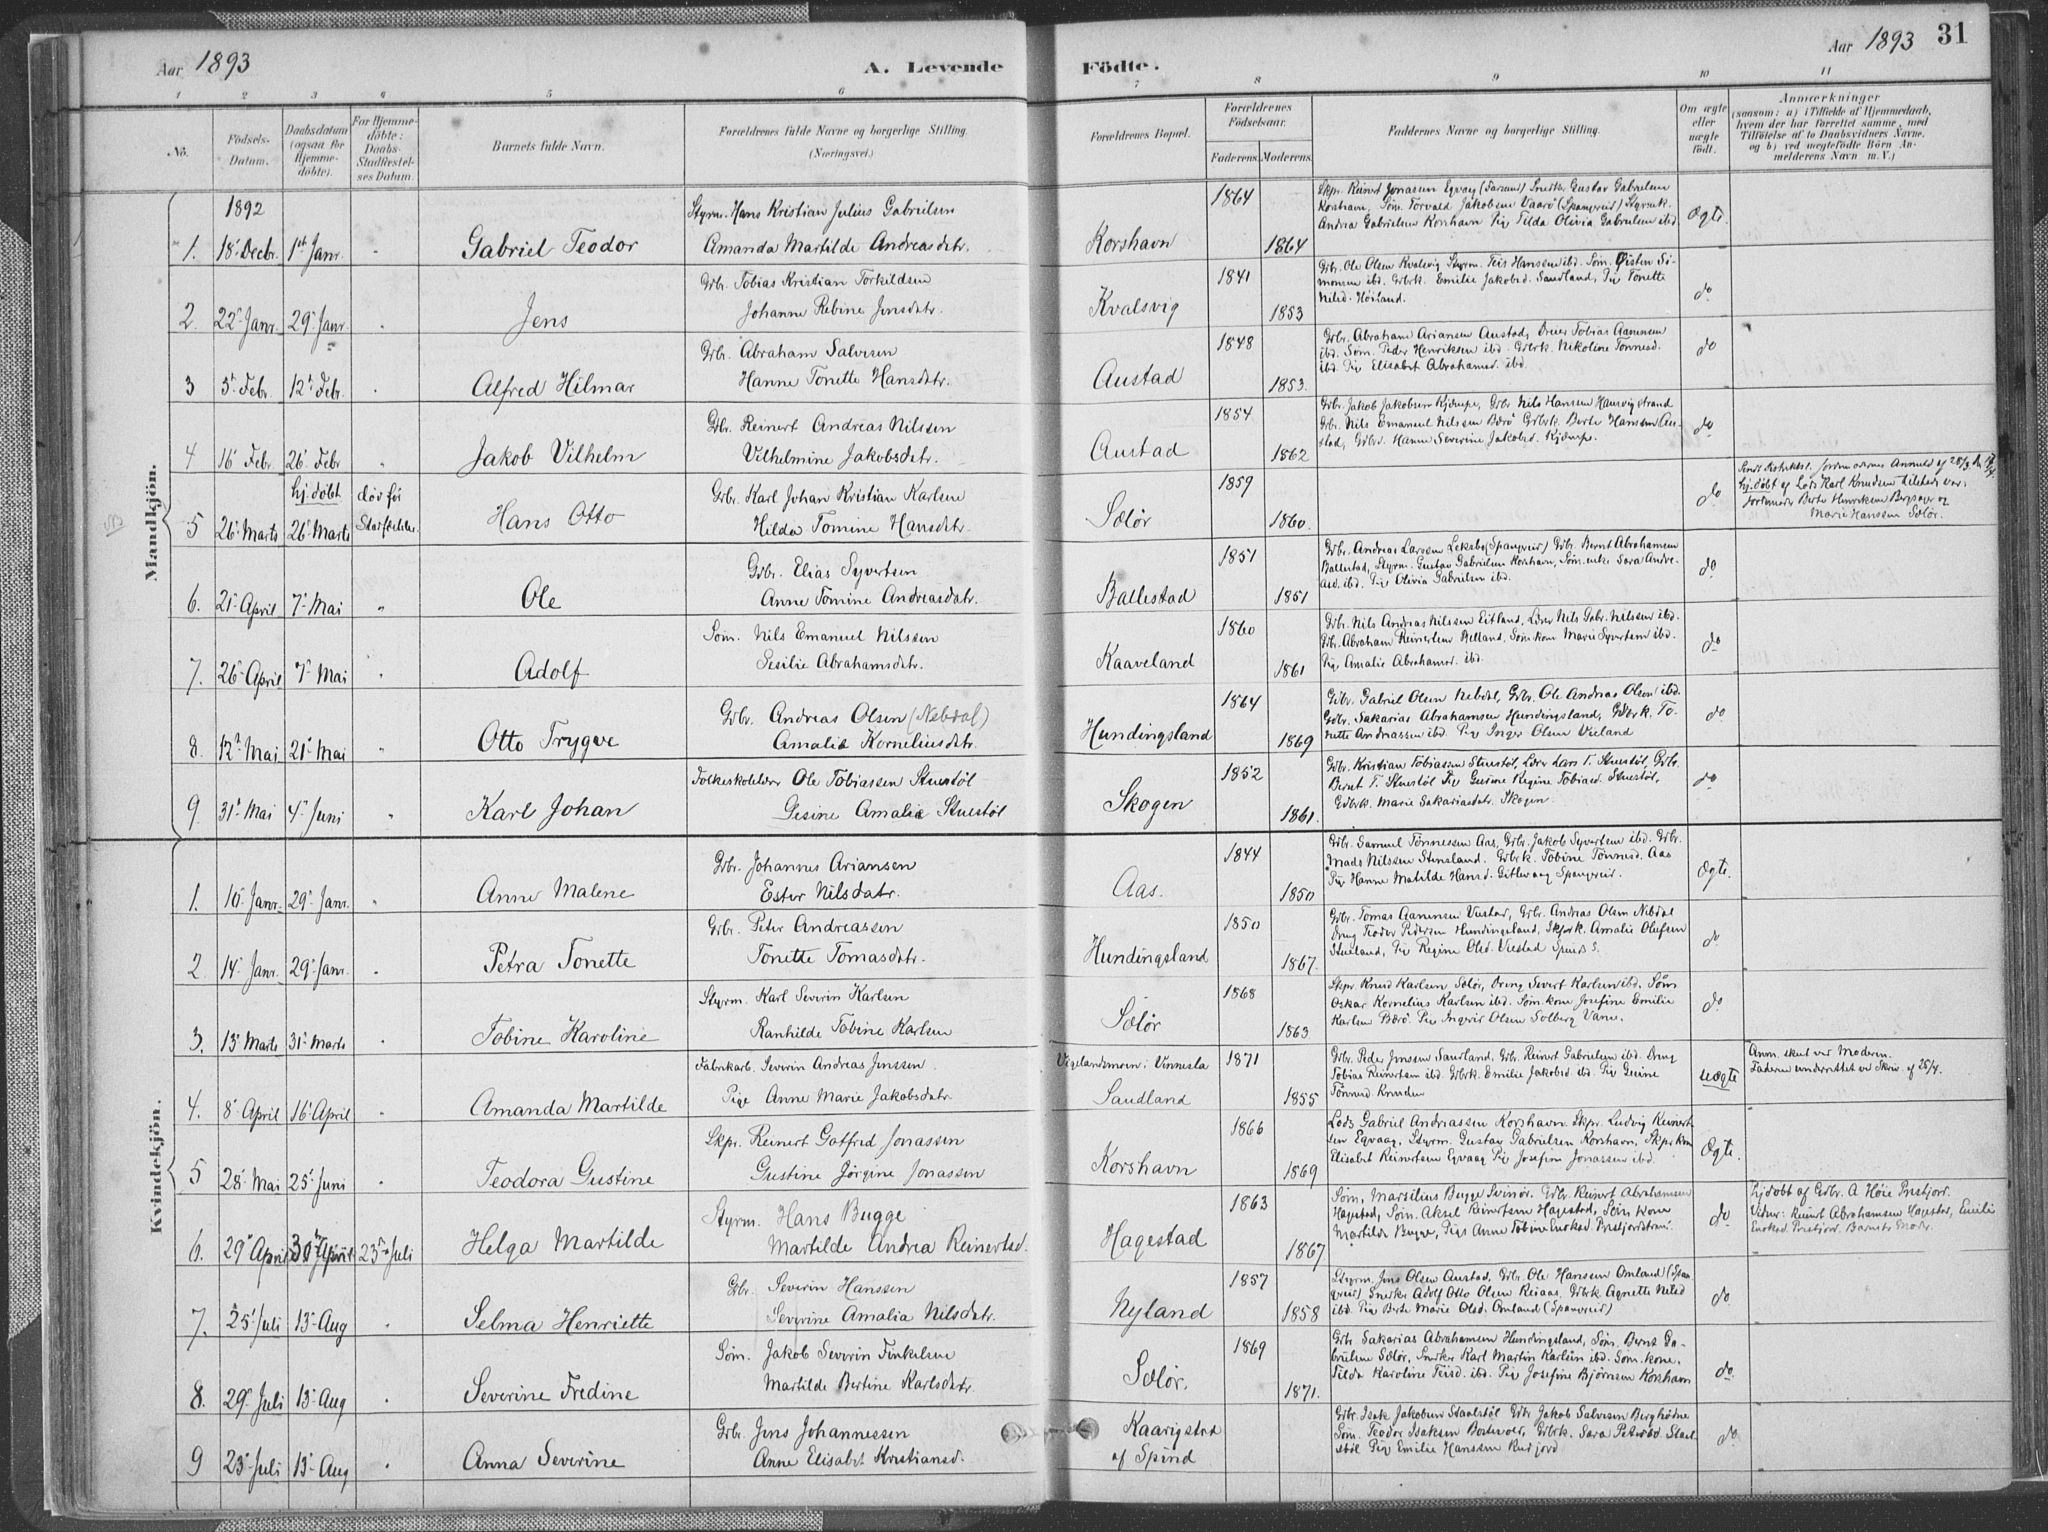 Aar 1893
A. Levende
Födte.
Aar 1893
31
1 2 3 4 5 6 7 8 9 10 11
No.
Födsels-Datum.
Daabsdatum (ogsaa for Hjemme-döbte).
For Hjemme-döbte: Daabs-Stadfæstel-ses Datum.
Barnets fulde Navn.
Forældrenes fulde Navne og borgerlige Stilling. (Næringsvei.)
Forældrenes Bopæl.
Forældrenes Födselsaar.
Faderens. Moderens.
Faddernes Navne og borgerlige Stilling.
Om ægte eller uægte födt.
Anmærkninger
(saasom: a) i Tilfælde af Hjemmedaab, hvem der har forrettet samme, med Tilföielse af to Daabsvidners Navne, og b) ved uægtefödte Börn Anmelderens Navn m.V.)
Mandkjön.
1892
1. 18 Decbr. 1st Janr. Gabriel Teodor
Styrm. Hans Kristian Julius Gabrielsen
Amanda Martilde Andreasdatr.
Korshavn 1864 1864
Skpr. Reinert Jonassen Egvaag (Farsund) Snedker Gustav Gabrielsen
Korshavn, Søm. Torvald Jakobsen Vaarø (Spangreid) Styrmk.
Andrea Gabrielsen Korshavn Pig Tilda Olivia Gabrielsen ibd
Ægte.
2. 22 Janr. 29 Janr. Jens
Grbr. Tobias Kristian Torkildsen
Johanne Rebine Jensdatr.
Kvalsvig 1841 1853
Grbr. Ole Olsen Kvalsvig Styrm. Teis Hanssen ibd. Søm. Øisten Si-
monsen ibd. Grbrk. Emilie Jakobsd. Saudland, Pig Tonette
Nilsd. Høiland.
do
3 5 Febr. 12 Febr. Alfred Hilmar
Grbr. Abraham Salvesen
Hanne Tonette Hansdatr.
Austad 1848 1853.
Grbr. Abraham Ariansen Austad, Tobias Aanensen
ibd. Søm. Peder Henriksen ibd. Grbrk. Nikoline Tønnesd.
ibd. Pig Elisabet Abrahamsd. ibd.
do
4 16 Febr. 26 Febr Jakob Vilhelm
Grbr. Reinert Andreas Nilssen
Vilhelmine Jakobsdatr.
Austad 1854 1862
Grbr. Jakob Jakobsen Kjørrepe, Grbr. Nils Hansen Haarvigstrand
Grbr. Nils Emanuel Nilssen Bærø Grbrk Berte Hanssen Au-
stad, Grbrd. Hanne Severine Jakobsd.
do
5 26 Marts hj. døbt 26 Marts død før Stadfæstelse. Hans Otto
Grbr. Karl Johan Kristian Karlsen
Hilda Tomine Hansdatr.
Sælør 1859 1860.
do
hj. døbt af Lods Karl Knudsen tilstede var:
Jordemoder Berte Henriksen og
Marie Hanssen Sælør.
6. 21 April 7 Mai Ole
Grbr. Elias Syvertsen
Anne Tomine Andreasdatr.
Ballestad 1851 1851
Grbr. Andreas Larsen (Spangreid) Grbr. Bernt Abrahamsen
Ballestad, Styrm. Gustav Gabrielsen Korshavn, Søm. enke Sara Andre-
asd. ibd. Pig Olivia Gabrielsen ibd.
do
7. 26 April 7 Mai Adolf
Søm. Nils Emanuel Nilssen
Sesilie Abrahamsdatr.
Kaaveland 1860 1861
Grbr. Nils Andreas Nilssen Eitland, Lærer Nils Gabr. Nilssen ibd.
Grbr. Abraham Reinertsen Helland, Søm. kone Marie Syvertsen ibd.
Pig Amalie Abrahamsd. ibd.
do
8. 12 Mai 21 Mai Otto Trygve
Grbr. Andreas Olsen (Nebdal)
Amalie Korneliusdatr.
Hundingsland 1864 1869
Grbr. Gabriel Olsen Nebdal, Grbr. Ole Andreas Olsen ibd.
Grdbr. Sakarias Abrahamsen Hundingsland, Grbrk. To-
nette Andreassen ibd. Pig Inger Olsen Vieland
do
9. 31 Mai 4 Juni Karl Johan
Folkeskolelærer Ole Tobiassen Stuestøl
Gesine Amalie Stuestøl
Skogen 1852 1861.
Grbr. Kristian Tobiassen Stuestøl, Lærer Lars T. Stuestøl, Grbr.
Bernt T. Stuestøl Pig Gurine Regine Tobiasd. Stuestøl,
Grbrk. Marie Sakariasdatr. Skogen
do
Kvindekjön.
1. 10 Janr. 29 Janr. Anne Malene
Grbr. Johannes Ariansen
Ester Nilsdatr.
Aas. 1844 1850
Grbr. Samuel Tønnessen Aas, Grbr. Jakob Syvertsen ibd. Grbr.
Mads Nilssen Stensland. Grbrk Tobine Tønnesd. Aas
Pig Hanne Matilde Hansd. Gitlevaag Spangreid.
Ægte.
2. 14 Janr. 29 Janr. Petra Tonette
Grbr. Peter Andreassen
Tonette Tomasdatr.
Hundingsland 1850 1867.
Grbr. Tomas Aanensen Viestad, Grbr. Andreas Olsen Nebdal
Dreng Teodor Pedersen Hundingsland, Skprk. Amalie Olufsen
Pig Regine Olsd. Viestad
do
3. 13 Marts 31 Marts Tobine Karoline
Styrm. Karl Severin Karlsen
Ranhilde Tobine Karlsen
Sælør 1868 1863
Skpr Knud Karlsen Sælør, Dreng Sivert Karlsen ibd. Søm
Oskar Kornelius Karlsen ibd. Søm. kone Josefine Emilie
Karlsen Bærø. Pig Ingerid Olsen Solberg Vanse.
do
4. 8 April 16 April Amanda Martilde
Fabrikarb. Severin Andreas Jenssen
Pige Anne Marie Jakobsdatr
Vigelandsmoen i Vennesla Saudland 1871 1855
Grbr. Peder Jenssen Saudland, Grbr. Reinert Gabrielsen ibd. Dreng
Tobias Reinertsen ibd. Grbrk. Emilie Jakobsd ibd. Pig Gurine
Tønnesd. Knuden
uægte
Anm. skett ved Moderen.
Faderen underrettet ved Skriv. af 25/4.
5 28 Mai 25 Juni Teodora Gustine
Skpr. Reinert Gotfred Jonassen
Gustine Jørgine Jonassen
Korshavn 1866 1869
Lods Gabriel Andreassen Korshavn. Skpr. Ludvig Reinert-
sen Egvaag, Styrm. Gustav Gabrielsen Korshavn, Skpr. kone
Elisabet Reinertsen Egvaag Pig Josefine Jonassen ibd
Ægte.
6. 29 April 30 April 23 Juli Helga Martilde
Styrm. Hans Bugge
Martilde Andrea Reinertsd.
Hagestad 1863 1867
Søm. Marsilius Bugge Svinør. Grbr. Reinert Abrahamsen
Hagestad, Søm. Aksel Reinertsen Hagestad, Søm. kone
Martilde Bugge, Pige Anne Tobine Enoksd.
do
Hjdøbt af Grbr. A Høie
Vidner: Reinert Abrahamsen Hagestad, Emilie
Enoksd. Barnets Moder.
7. 25 Juli 13 Aug Selma Henriette
Grbr. Severin Hanssen
Severine Amalia Nilsdatr.
Nyland 1857 1858
Styrm. Jens Olsen Austad, Grbr. Ole Hanssen Omland (Span-
greid) Snerker Adolf Otto Olsen Reiaas. Grbrk Agnette Nilsd
ibd. Pig Berte Marie Olsd. Omland (Spangreid)
do
8. 29 Juli 13 Aug Severine Fredine
Søm. Jakob Severin Finkelsen
Martilde Bertine Karlsdatr.
Sælør. 1869 1871.
Grbr Sakarias Abrahamsen Hundingsland, Søm. Bernt Ga-
brielsen Sælør, Snerker Karl Martin Karlsen ibd. Søm. kone.
Tilda Karoline Teisd. ibd. Pig Josefine Bjørnsen Korshavn
do
9 23 Juli 13 Aug Anna Severine
Grbr. Jens Johannessen
Anne Elisabet Kristiansd.
Kaarigstad af Spind
Grbr. Isak Jakobsen Staalstøl Grbr Jakob Salvesen Berghødne
Søm. Teodor Isaksen Grbrk. Sara Petersd. Staal-
støl Pig Emilie Hanssen Rudjord
do